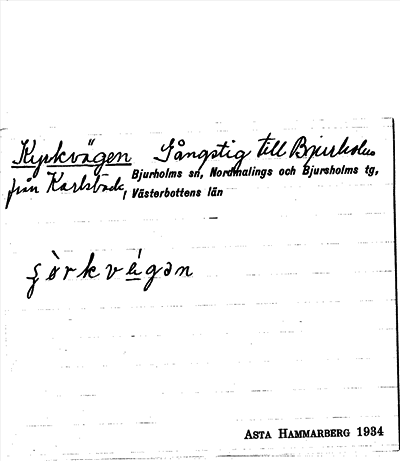 Kyrkvägen Gångstig till Bjurholm
från Karlsbäck, Bjurholms sn, Nordmalings och Bjursholms tg,
Västerbottens län
ʂørkvégən
ASTA HAMMARBERG 1934